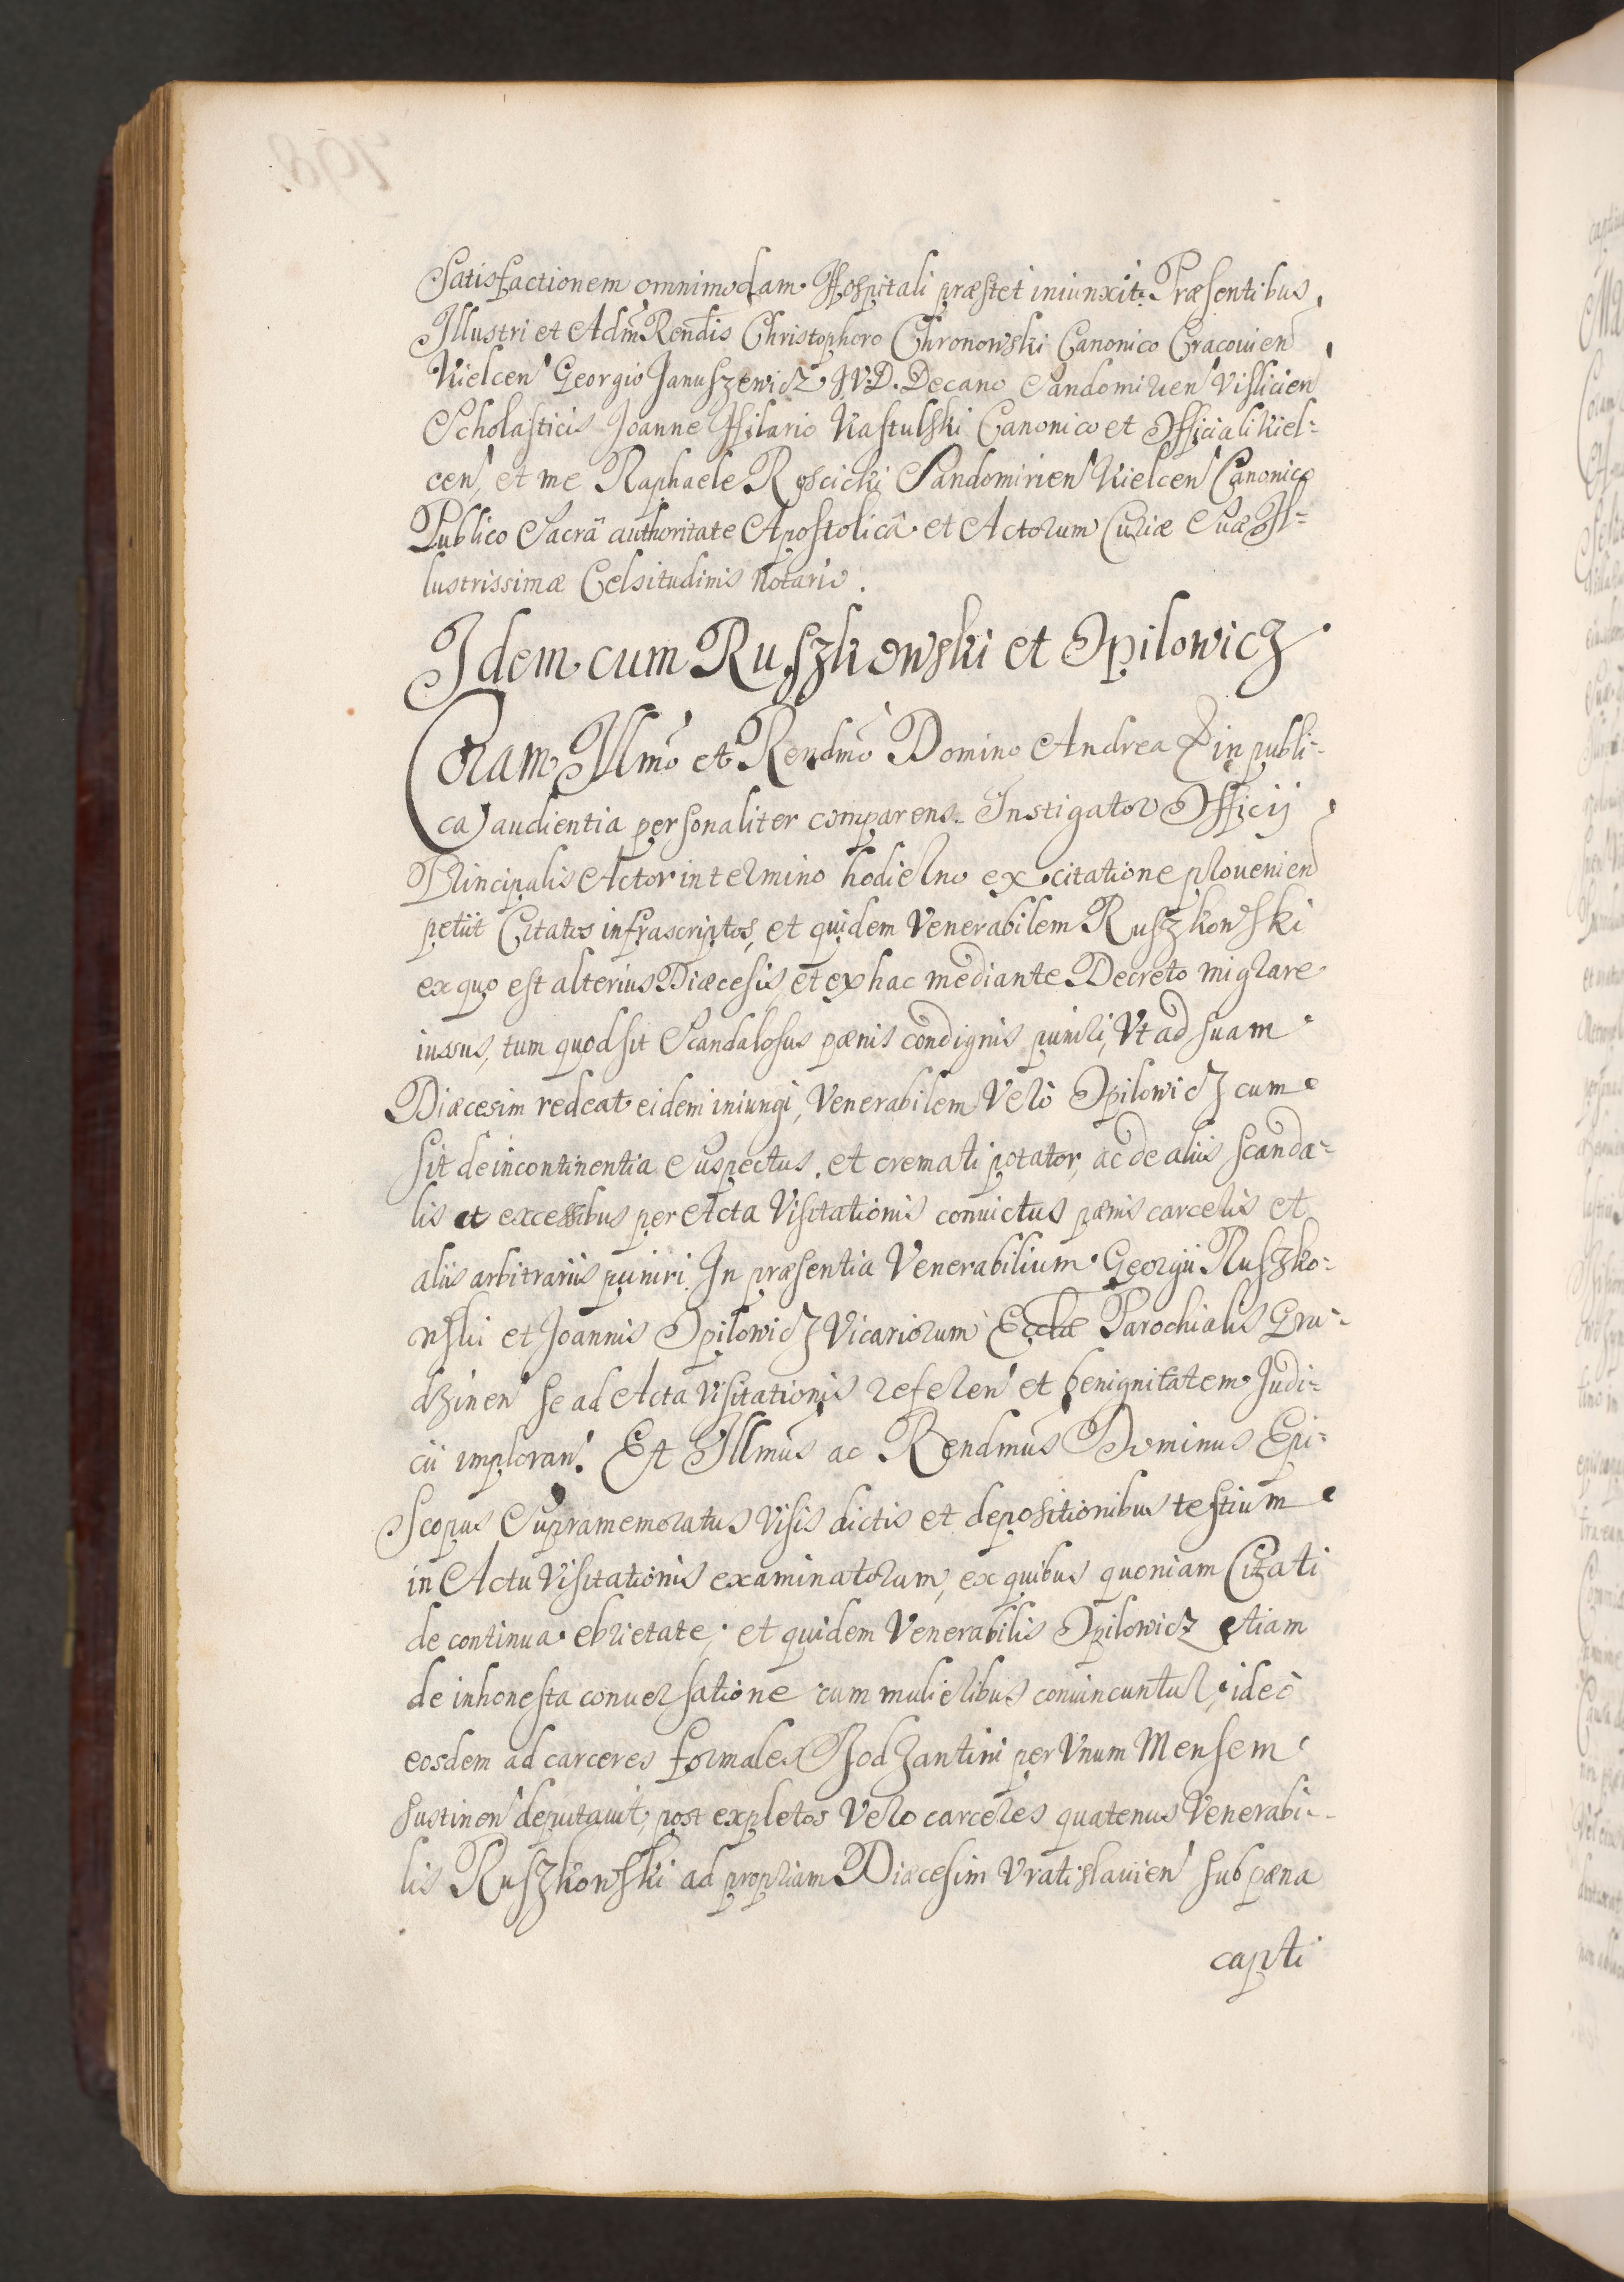 Satisfactionem omnimodam Hospitali præstet iniunxit. Præsentibus
Illustri et Adm Rendis Christophoro Chronowski Canonico Cracouien
Kielcen Georgio Januszewicz J.V.D. Decano Sandomirien Vislicien
Scholasticis Joanne Hilario Kastulski Canonico et Officiali Kiel=
cen, et me Raphaele Roscicki Sandomirien Kielcen Canonico
Publico Sacrâ authoritate Apostolicâ et Actorum Curiæ Suæ Il=
lustrissimæ Celsitudinis Notario.
Idem cum Ruszkowski et Opilowicz
Coram Illmo et Rendmo Domino Andrea in publi=
ca audientia personaliter comparens Instigator Officij
Principalis Actor in termino hodierno ex citatione prouenien
petiit Citatos infrascriptos, et quidem Venerabilem Ruszkowski
ex quo est alterius Diæcesis, et ex hac mediante Decreto migrare
iussus, tum quod sit Scandalosus pænis condignis puniri, Vt ad suam
Diæcesim redeat eidem iniungi, Venerabilem Verò Opilowicz cum
sit de incontinentia Suspectus, et cremati potator, ac de aliis scanda=
lis et excessibus per Acta Visitationis conuictus pænis carceris et
aliis arbitrariis puniri. In præsentia Venerabilium Georgii Ruszko=
wskii et Joannis Opilowicz Vicariorum Ecclæ Parochialis Gru=
dzinen se ad Acta Visitationis referen et benignitatem Judi=
cii imploran. Et Illmus ac Rendmus Dominus Epi=
scopus Supramemoratus Visis dictis et depositionibus testium
in Actu Visitationis examinatorum, ex quibus quoniam Citati
de continua ebrietate, et quidem Venerabilis Opilowicz etiam
de inhonesta conuersatione cum mulieribus conuincuntur, ideò
eosdem ad carceres formales Bodzantini per Vnum Mensem
sustinen deputauit, post expletos Vero carceres quatenus Venerabi=
lis Ruszkowski ad propriam Diæcesim Vratislauien sub pæna
capti